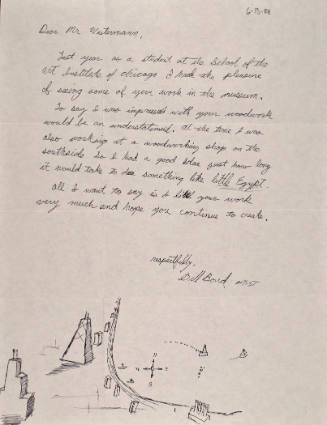 Dear Mr. Westermann,
Last year as a student at the School of the
Art Institute of Chicago I had the pleasure
of seeing some of your work in the museum.
To say I was impressed with your woodwork
would be an understatement. At the time I was
also working at a woodworking shop on the
southside so I had a good idea just how long
it would take to do something like little Egypt.
All I want to say is I like your work
very much and hope you continue to create.
respectfully,
Bill Boyd